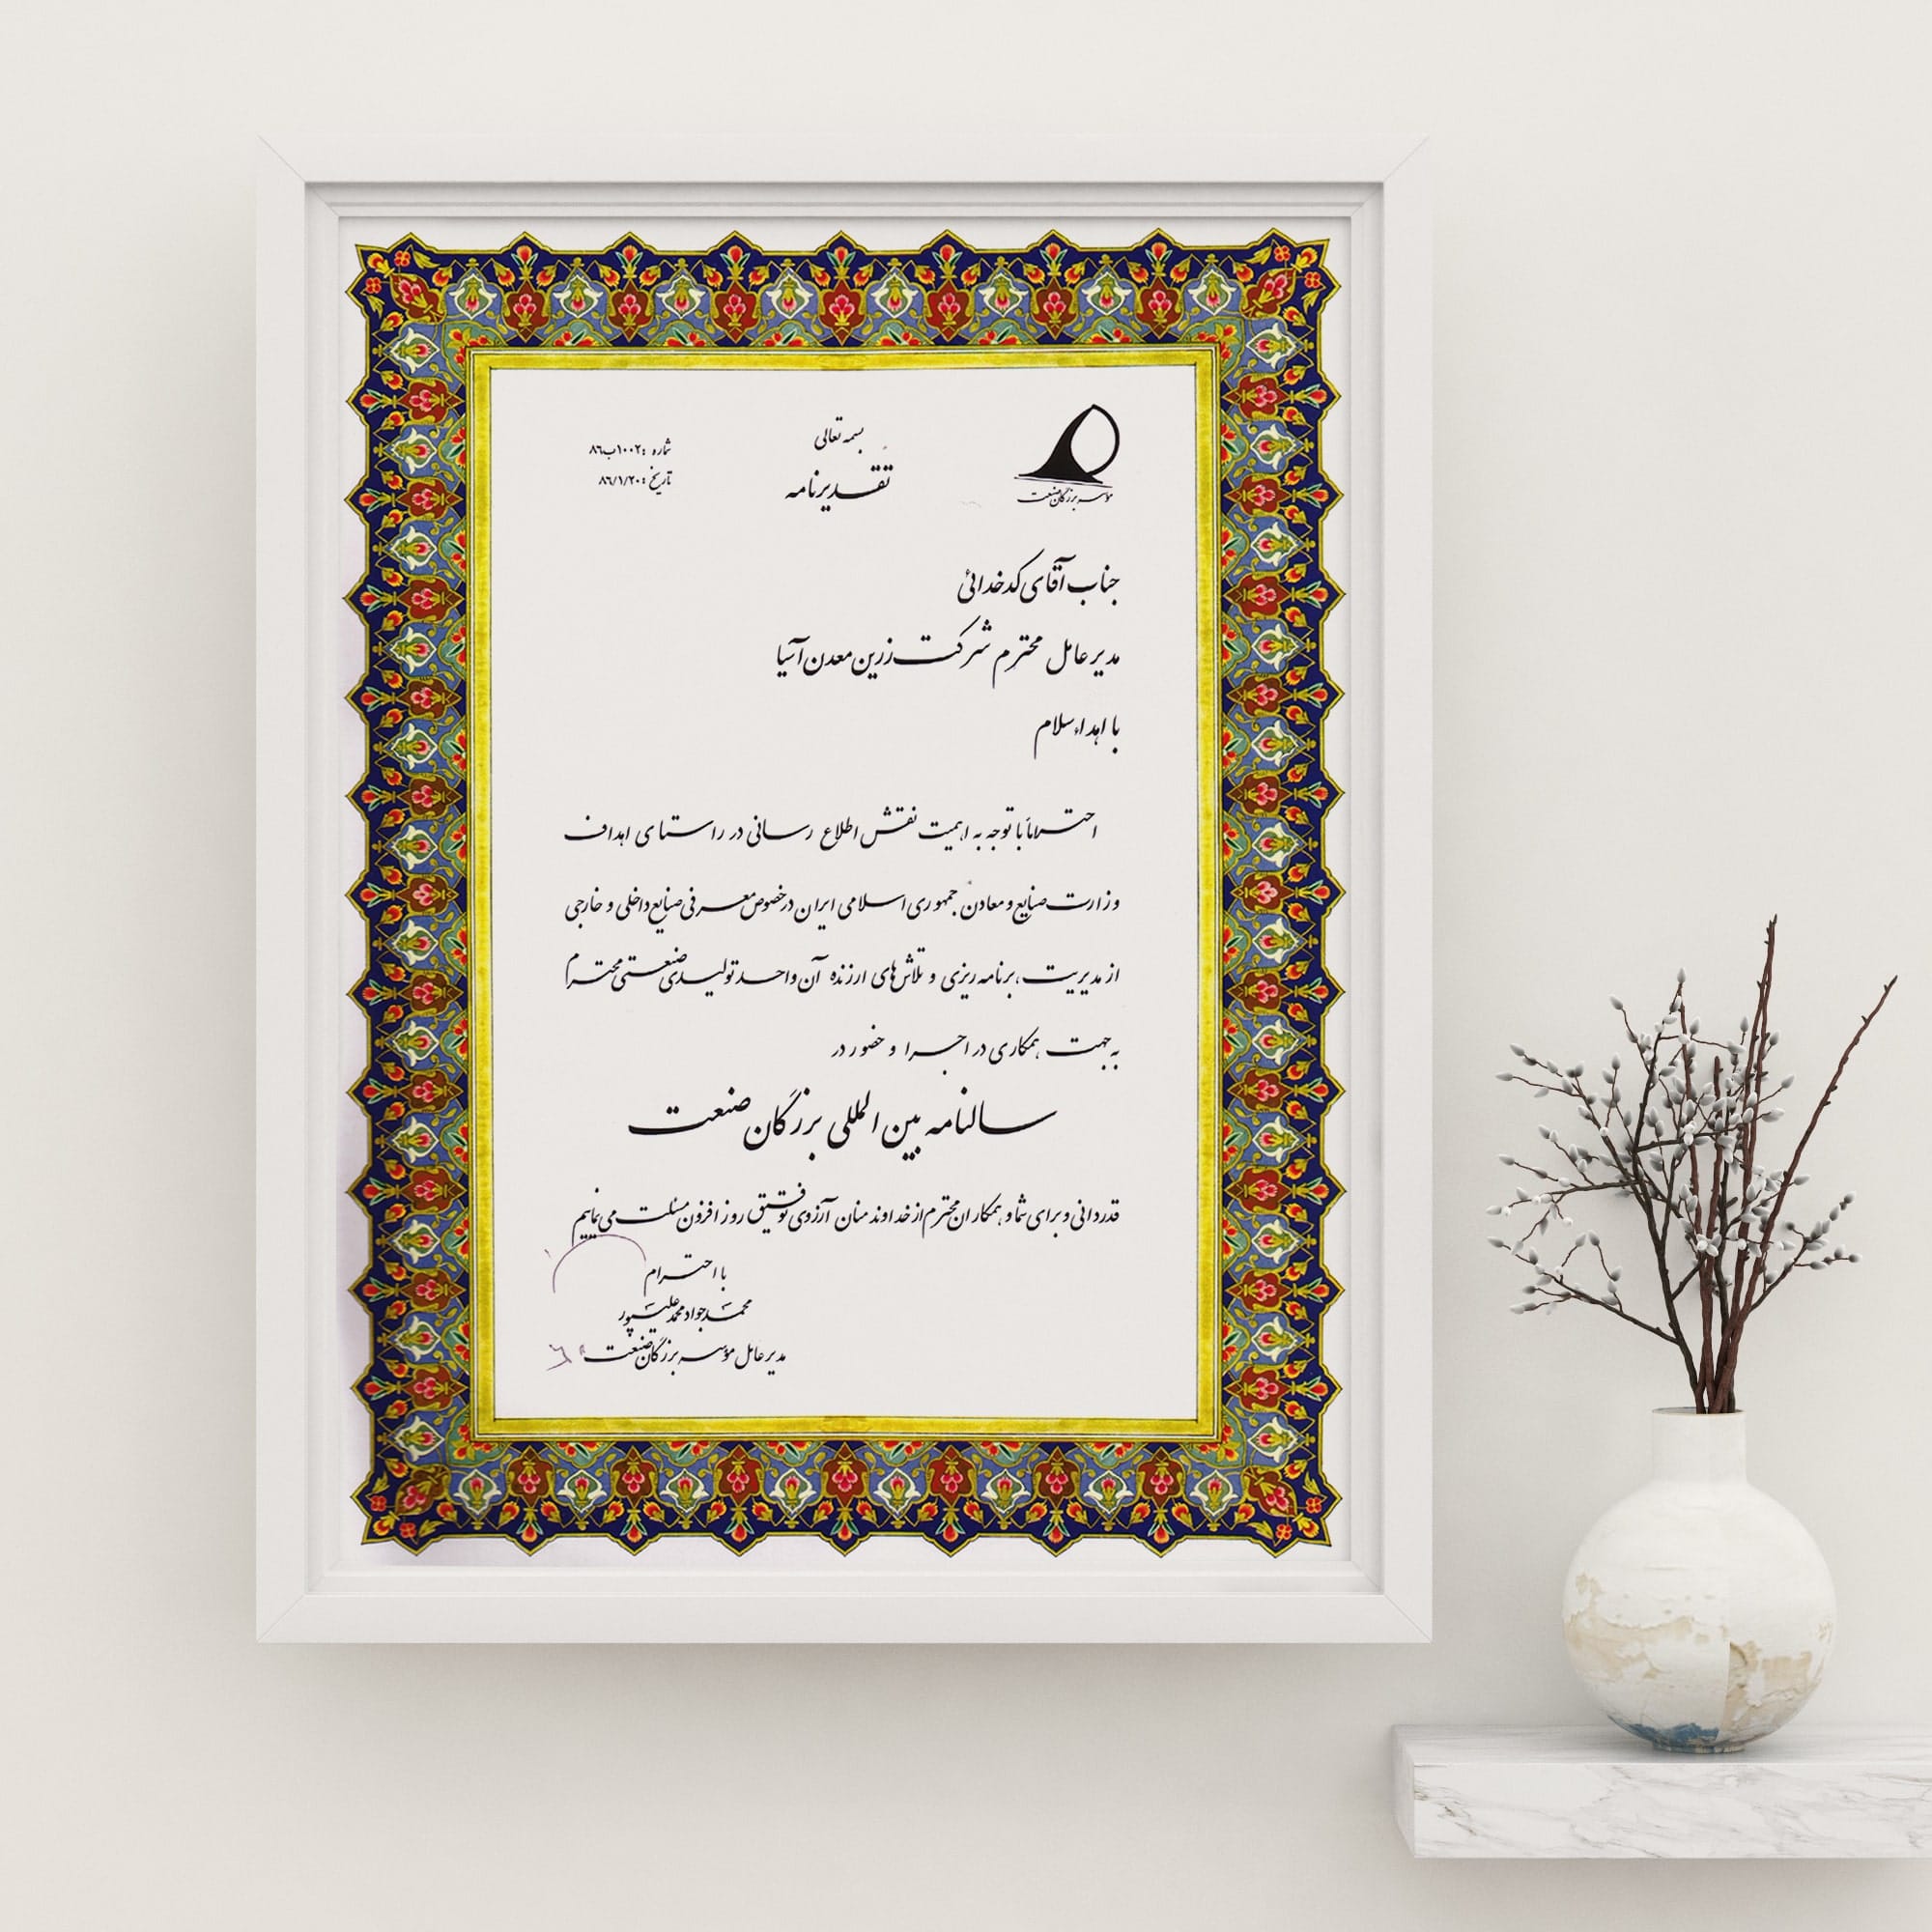 بسمه تعالی
تقدیرنامه
شماره :۱۰۰۲ب۸۶
تاریخ :۸۶/۱/۲۰
مؤسسه بزرگان صنعت
جناب آقای کدخدائی
مدیر عامل محترم شرکت زرین معدن آسیا
با اهداء سلام
احتراماً با توجه به اهمیت نقش اطلاع رسانی در راستای اهداف
وزارت صنایع و معادن جمهوری اسلامی ایران در خصوص معرفی صنایع داخلی و خارجی
از مدیریت، برنامه ریزی و تلاش های ارزنده آن واحد تولیدی صنعتی محترم
به جهت همکاری در اجرا و حضور در
سالنامه بین المللی بزرگان صنعت
قدردانی و برای شما و همکاران محترم از خداوند منان آرزوی توفیق روز افزون مسئلت می نماییم
با احترام
محمدجواد محمدعلیپور
مدیر عامل مؤسسه بزرگان صنعت